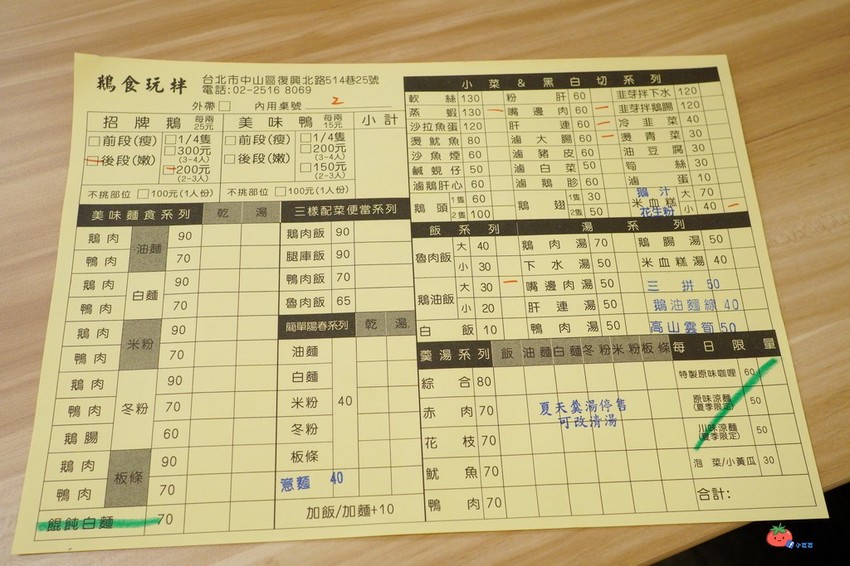 鵝食玩拌
台北市中山區復興北路514巷25號
電話:02-2516 8069
外帶 內用桌號 2
招牌鵝 每兩25元 美味鴨 每兩15元 小計
前段(瘦) 1/4隻 前段(瘦) 1/4隻
後段(嫩) 300元 (3-4人) 後段(嫩) 200元 (3-4人)
200元 (2-3人) 150元 (2-3人)
不挑部位 100元(1人份) 不挑部位 100元(1人份)
美味麵食系列 乾 湯
鵝肉 油麵 90
鴨肉 70
鵝肉 白麵 90
鴨肉 70
鵝肉 米粉 90
鴨肉 70
鵝肉 冬粉 90
鴨肉 70
鵝腸 60
鵝肉 板條 90
鴨肉 70
餛飩白麵 70
三樣配菜便當系列
鵝肉飯 90
腿庫飯 90
鴨肉飯 70
魯肉飯 65
簡單陽春系列 乾 湯
油麵
白麵
米粉 40
冬粉
板條
意麵 40
加飯/加麵+10
小菜&黑白切系列
軟絲 130 粉肝 60 韭芽拌下水 120
蒸蝦 130 嘴邊肉 60 韭芽拌鵝腸 120
沙拉魚蛋 120 肝連 60 冷韭菜 40
燙魷魚 80 滷大腸 60 燙青菜 30
沙魚煙 60 滷豬皮 60 油豆腐 30
鹹蜆仔 50 滷白菜 50 筍絲 30
滷鵝肝心 60 滷鵝胗 60 滷蛋 10
鵝頭 1隻 60 2隻 100 鵝翅 1隻 30 2隻 50 鵝汁 米血糕 花生粉 大 70 小 40
飯系列 湯系列
魯肉飯 大 40 鵝肉湯 70 鵝腸湯 50
小 30 下水湯 50 米血糕湯 40
鵝油飯 大 30 嘴邊肉湯 50 三拼 50
小 20 肝連湯 50 鵝油麵線 40
白飯 10 鴨肉湯 50 高山雲筍 50
羹湯系列 飯 油麵 白麵 冬粉 米粉 板條 每日限量
綜合 80 特製原味咖哩 60
赤肉 70 原味涼麵 (夏季限定) 50
花枝 70 川味涼麵 (夏季限定) 50
魷魚 70 泡菜/小黃瓜 30
鴨肉 70
夏天羹湯停售
可改清湯
合計: